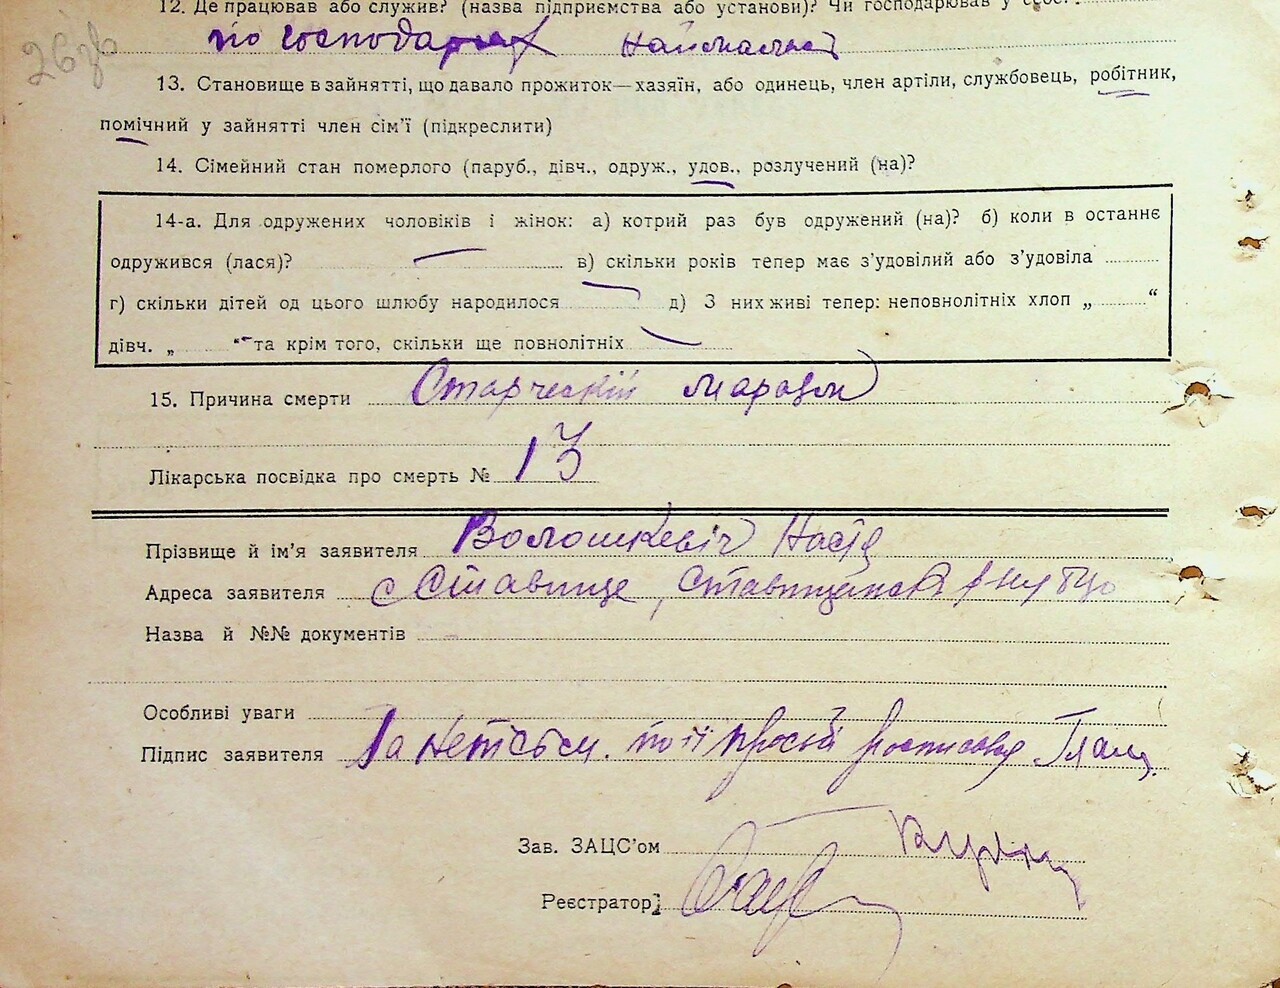 12. Де працював або служив? (назва підприємства або установи)? Чи господарював у
26 зв
по господарях
13. Становище в зайнятті, що давало прожиток—хазяїн, або одинець, член артіли, службовець, робітник,
помічний у зайнятті член сім’ї (підкреслити)
14. Сімейний стан померлого (паруб., дівч., одруж., удов., розлучений (на)?
14-а. Для одружених чоловіків і жінок: а) котрий раз був одружений (на)? б) коли в останнє
одружився (лася)? в) скільки років тепер має з’удовілий або з’удовіла
г) скільки дітей од цього шлюбу народилося д) З них живі тепер: неповнолітніх хлоп „ “
дівч. „ “ та крім того, скільки ще повнолітніх
15. Причина смерти Старческій маразм
Лікарська посвідка про смерть № 13
Прізвище й ім’я заявителя Волошкевіч Настя
Адреса заявителя с Ставище, Ставищанск
Назва й №№ документів
Особливі уваги
Підпис заявителя За неписьм. по її просьбі росписався
Зав. ЗАЦС’ом
Реєстратор